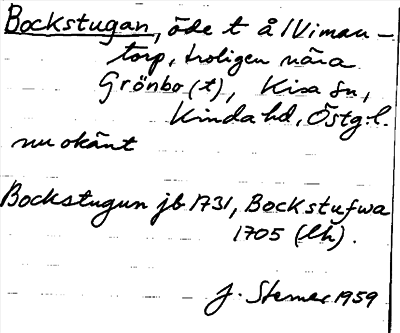 Bockstugan, öde t å /Vimau-
torp, troligen nära
Grönbo (t), Kisa sn,
Kinda hd, Östg:l.
nu okänt
Bockstugun jb 1731, Bockstufwa
1705 (lh).
J. Sterner 1959